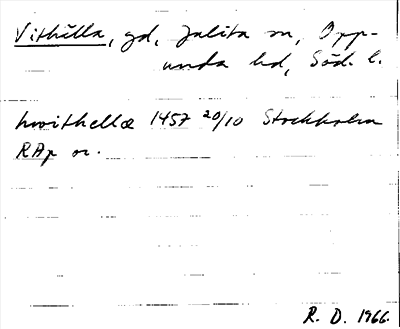 Vithälla, gd, Julita sn, Opp-
unda hd, Söd. l.
hwithellæ 1457 20/10 Stockholm
RAp or.
R. D. 1966.